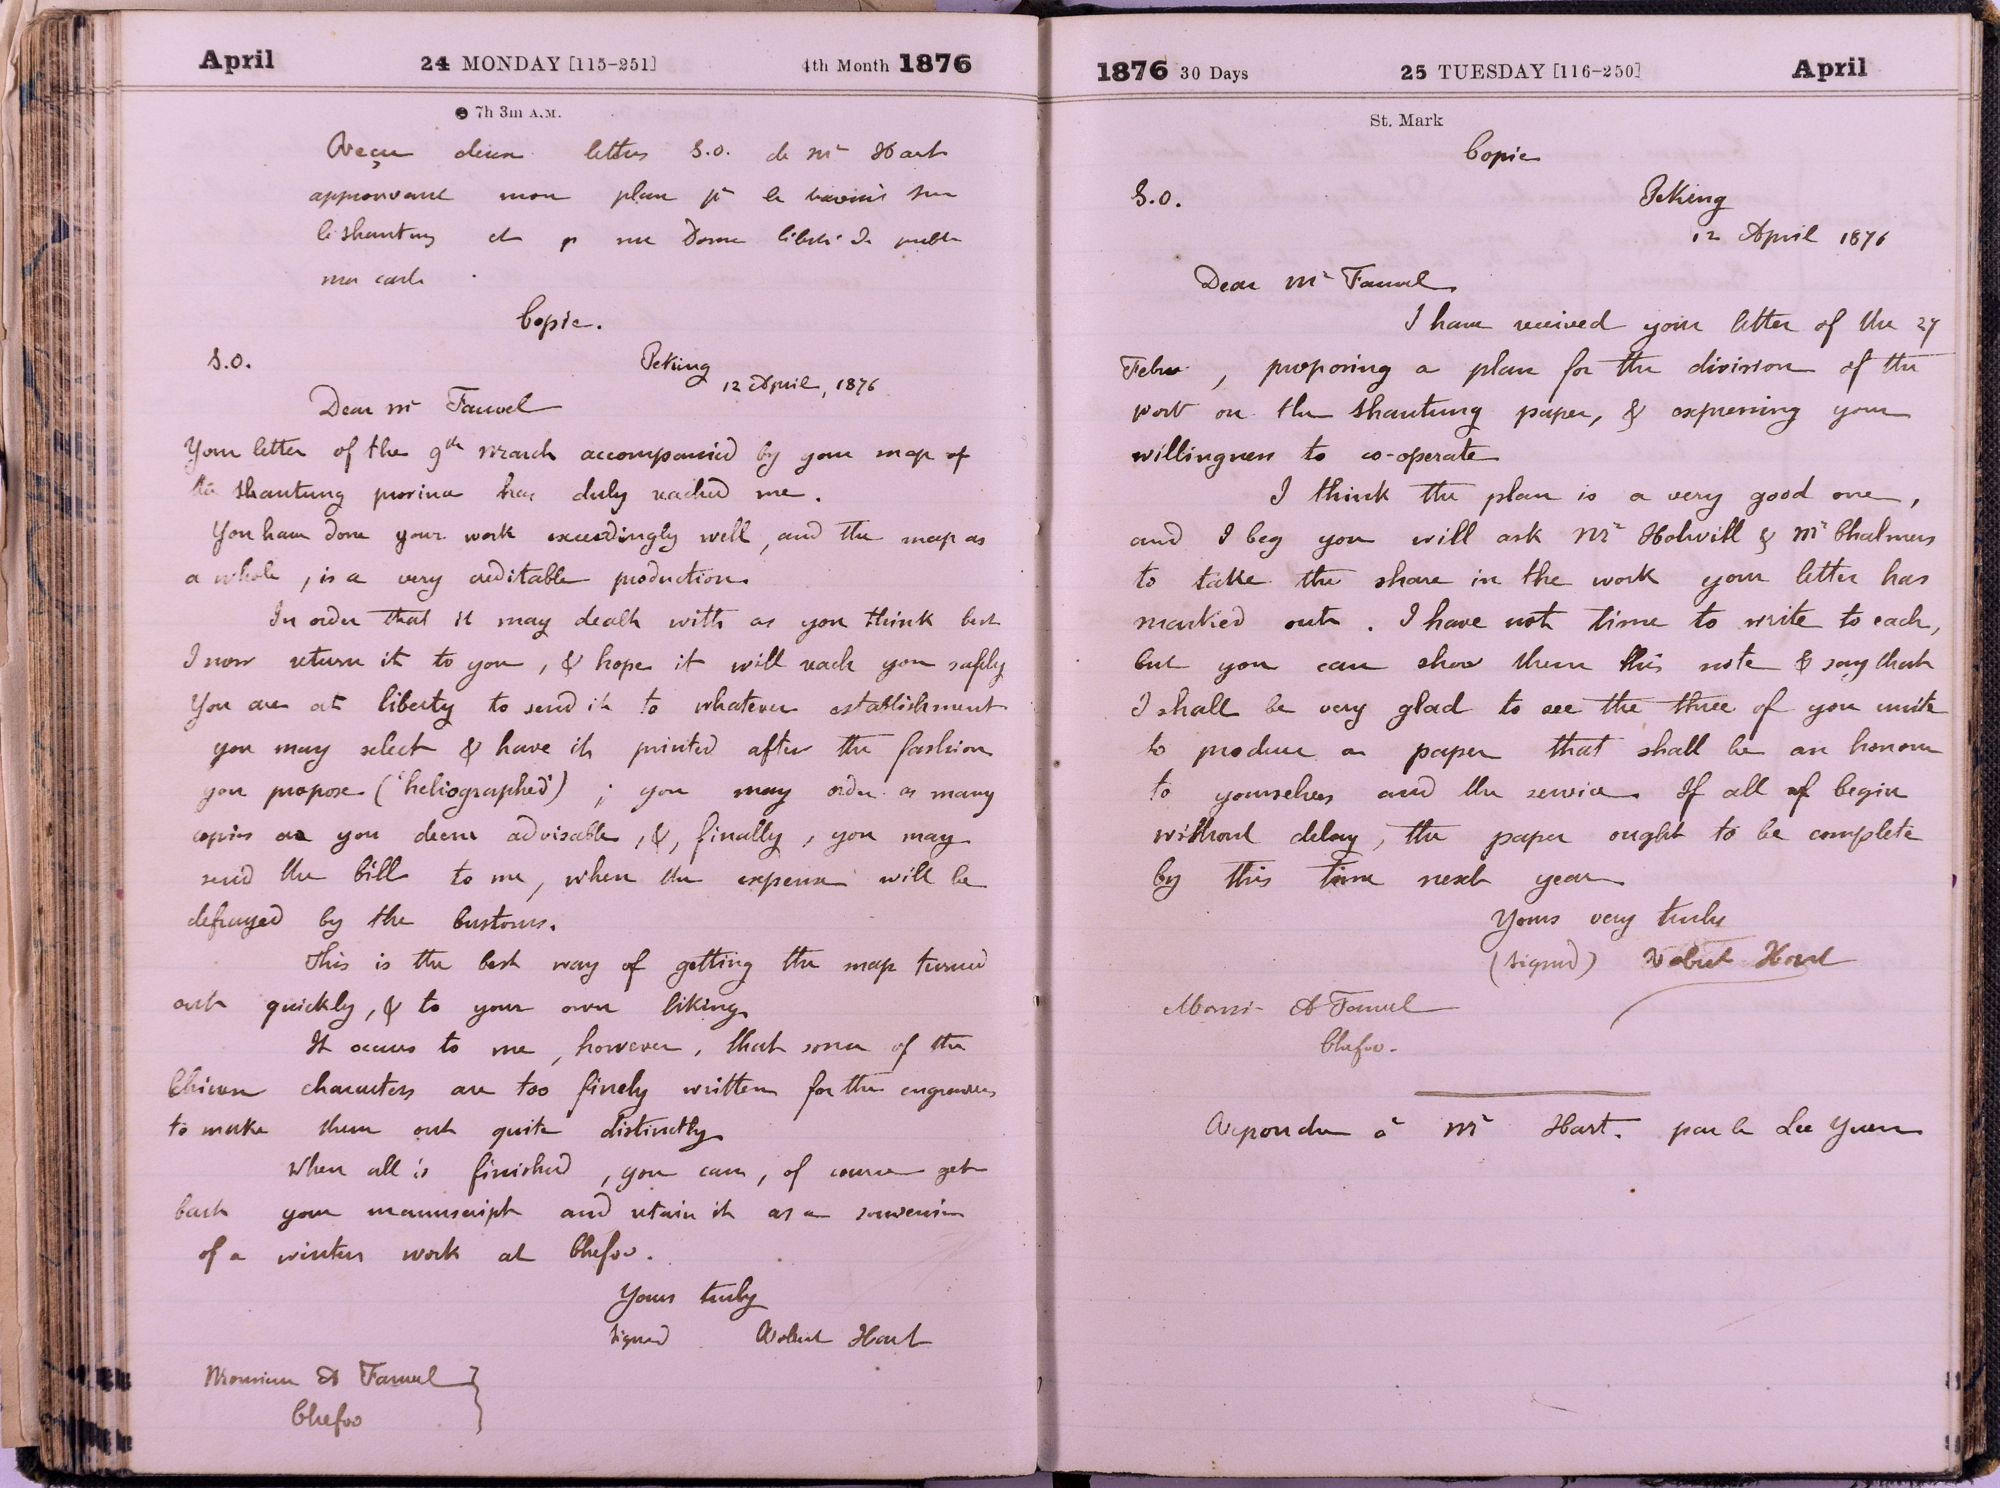 April 24 MONDAY [115-251] 4th Month 1876
7h 3m A.M.
Reçu deux lettres S.O. de Mr Hart
approuvant mon plan pr le travail sur
le Shantung et me donne liberté de publier
ma carte
Copie.
S.O. Peking
12 April, 1876
Dear Mr Fauvel
Your letter of the 9th March accompanied by your map of
the Shantung province has duly reached me.
You have done your work exceedingly well, and the map as
a whole, is a very creditable production.
In order that it may dealt with as you think best
I now return it to you, & hope it will reach you safely
You are at liberty to send it to whatever establishment
you may select & have it printed after the fashion
you propose ('heliographed'); you may order as many
copies as you deem advisable, &, finally, you may
send the bill to me, when the expense will be
defrayed by the Customs.
This is the best way of getting the map turned
out quickly, & to your own liking.
It occurs to me, however, that some of the
Chinese characters are too finely written for the engravers
to make them out quite distinctly.
When all is finished, you can, of course get
back your manuscript and retain it as a souvenir
of a winters work at Chefoo.
Yours truly
signed Robert Hart
Monsieur A Fauvel
Chefoo
1876 30 Days 25 TUESDAY [116-250] April
St. Mark
Copie
S.O. Peking
12 April 1876
Dear Mr Fauvel
I have received your letter of the 27
Febru, proposing a plan for the division of the
work on the Shantung paper, & expressing your
willingness to co-operate
I think the plan is a very good one,
and I beg you will ask Mr Holwill & Mr Chalmers
to take the share in the work your letter has
marked out. I have not time to write to each,
but you can show them this note & say that
I shall be very glad to see the three of you unite
to produce a paper that shall be an honour
to yourselves and the service. If all of begin
without delay, the paper ought to be complete
by this time next year
Yours very truly
(signed) Robert Hart
Monsr A Fauvel
Chefoo.
Repondu à Mr Hart. par le Lee Yuen